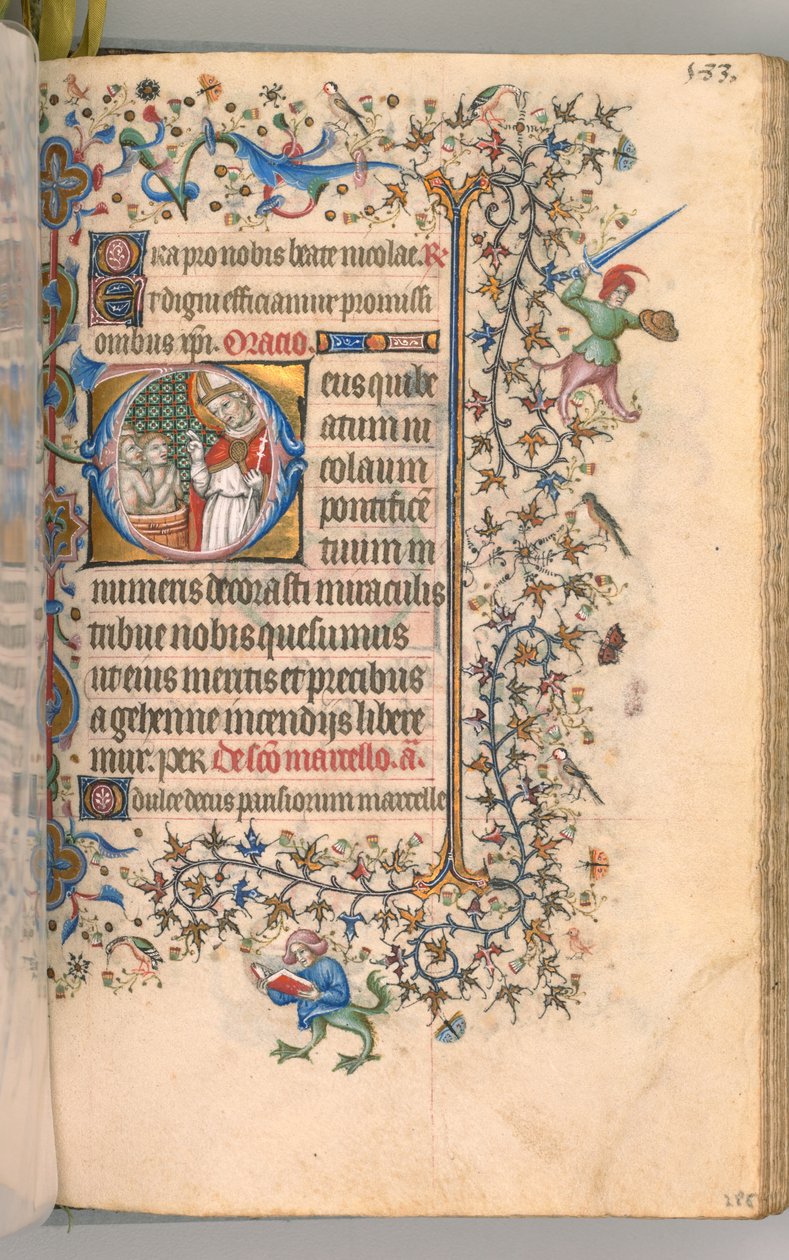 533.
Ora pro nobis beate nicolae. R̃
Et digni efficiamur promissi
onibus xp̃i. Oracio.
Deus qui be
atum ni
colaum
pontificẽ
tuum in
numeris decorasti miraculis
tribue nobis quesumus
ut eius meritis et precibus
a gehenne incendijs libere
mur. per De sc̃o marcello. ã.
O dulce decus parisiorum marcelle